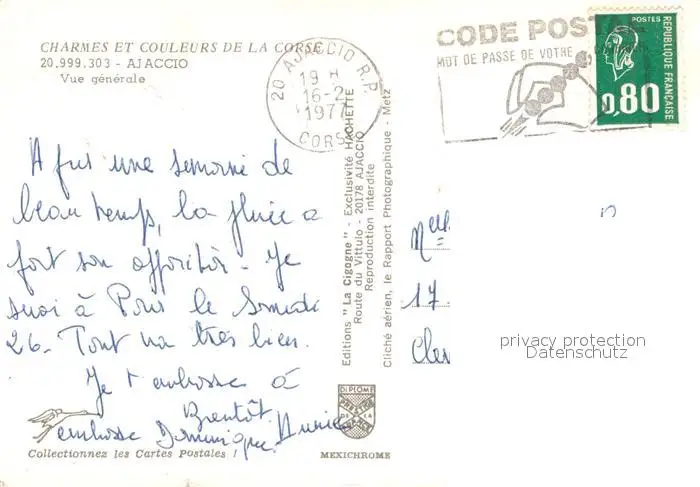 CHARMES ET COULEURS DE LA CORSE
20.999.303 - AJACCIO
Vue générale
20 AJACCIO R.P.
19 H
16-2
1977
CORSE
CODE POS
MOT DE PASSE DE VOTRE
POSTES
RÉPUBLIQUE FRANÇAISE
0,80
une semaine de
beau temps, la pluie a
fait son apparition. Je
à Paris le Samedi
26. Tout va très bien.
Je t'embrasse à
Bientôt
embrasse Dominique.
Editions "La Cigogne" - Exclusivité HACHETTE
Route du Vittulo - 20178 AJACCIO
Reproduction interdite
Cliché aérien, le Rapport Photographique - Metz
17.
privacy protection
Datenschutz
DIPLOME
PRESTIGE
DE LA
FRANCE
Collectionnez les Cartes Postales !
MEXICHROME